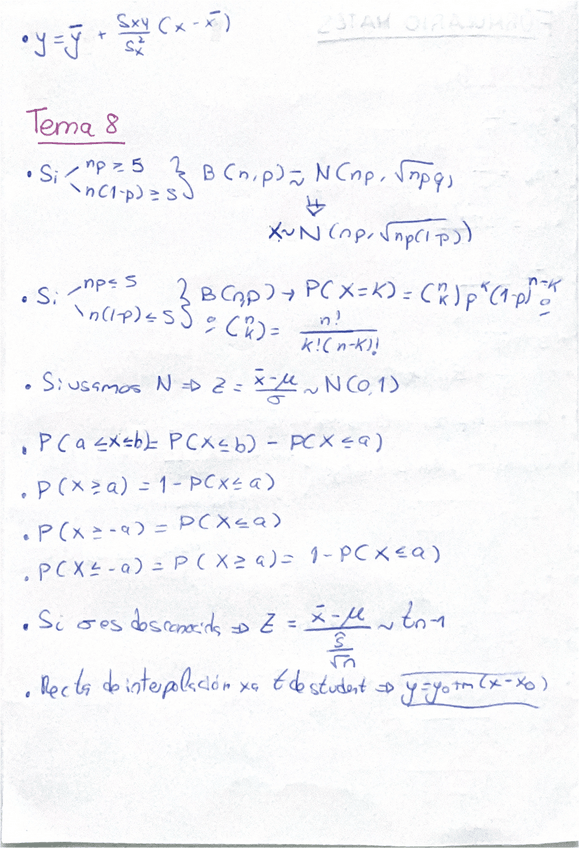 • y = ȳ + Sxy/Sx² (x - x̄)
Tema 8
• Si np ≥ 5
n(1-p) ≥ 5 } B(n,p) ≈ N(np, √npq)
⇓
X ~ N(np, √np(1-p))
• Si np ≤ 5
n(1-p) ≤ 5 } B(n,p) → P(X=K) = (n K) p^K (1-p)^n-K
(n K) = n! / K!(n-K)!
• Si usamos N ⇒ Z = x̄-μ / σ ~ N(0,1)
• P(a ≤ x ≤ b) = P(X ≤ b) - P(X ≤ a)
• P(X ≥ a) = 1 - P(X ≤ a)
• P(X ≥ -a) = P(X ≤ a)
• P(X ≤ -a) = P(X ≥ a) = 1 - P(X ≤ a)
• Si σ es desconocida ⇒ Z = x̄-μ / ŝ/√n ~ tn-1
• Recta de interpolación xa t de student ⇒ y=y0+m(x-x0)